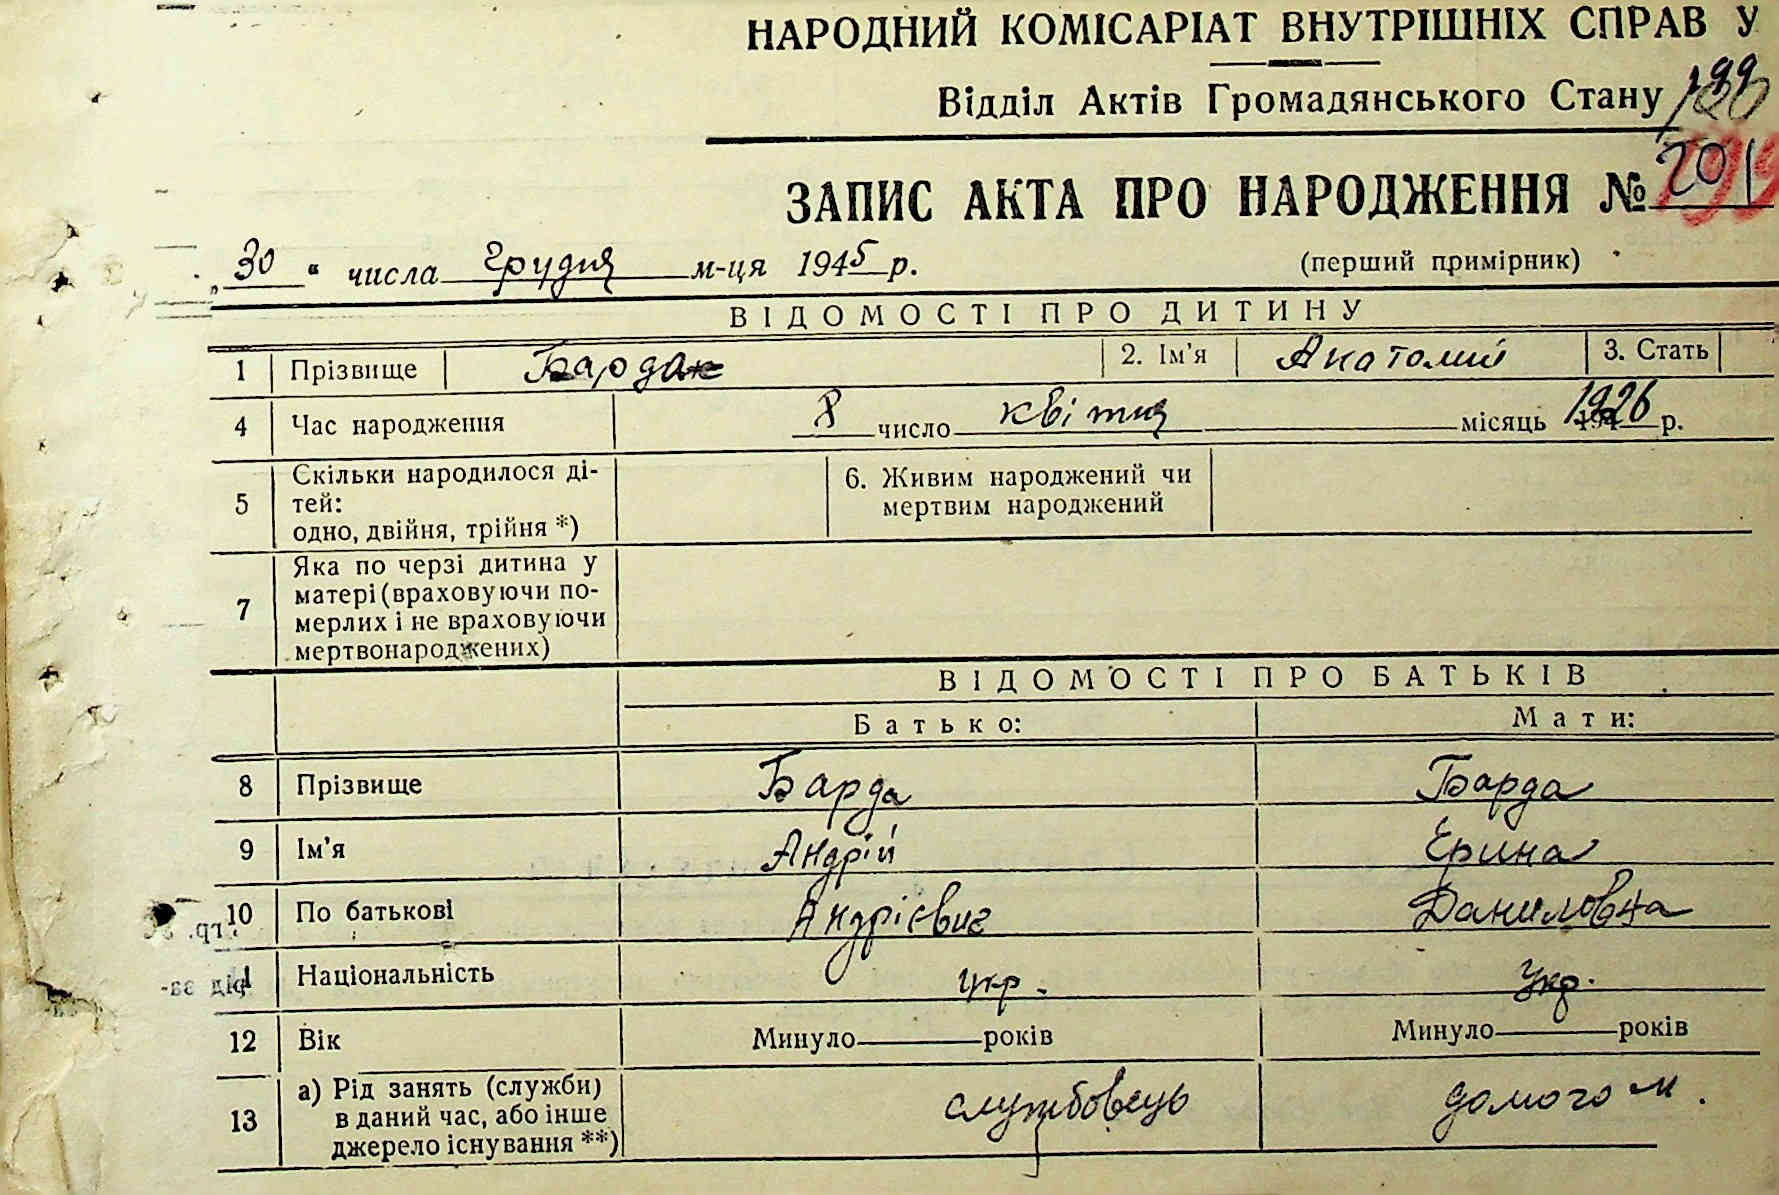 НАРОДНИЙ КОМІСАРІАТ ВНУТРІШНІХ СПРАВ У
Відділ Актів Громадянського Стану
ЗАПИС АКТА ПРО НАРОДЖЕННЯ № 201
„30“ числа Грудня м-ця 1945 р. (перший примірник)
ВІДОМОСТІ ПРО ДИТИНУ
1 Прізвище Барда 2. Ім’я Анатолий 3. Стать
4 Час народження 8 число квітня місяць 1926 р.
5 Скільки народилося ді-
тей:
одно, двійня, трійня *)
6. Живим народжений чи
мертвим народжений
7 Яка по черзі дитина у
матері (враховуючи по-
мерлих і не враховуючи
мертвонароджених)
ВІДОМОСТІ ПРО БАТЬКІВ
Батько: Мати:
8 Прізвище Барда Барда
9 Ім’я Андрій Ерина
10 По батькові Андрієвич Даниловна
11 Національність укр. Укр.
12 Вік Минуло років Минуло років
13 а) Рід занять (служби)
в даний час, або інше
джерело існування **)
службовець домогом.